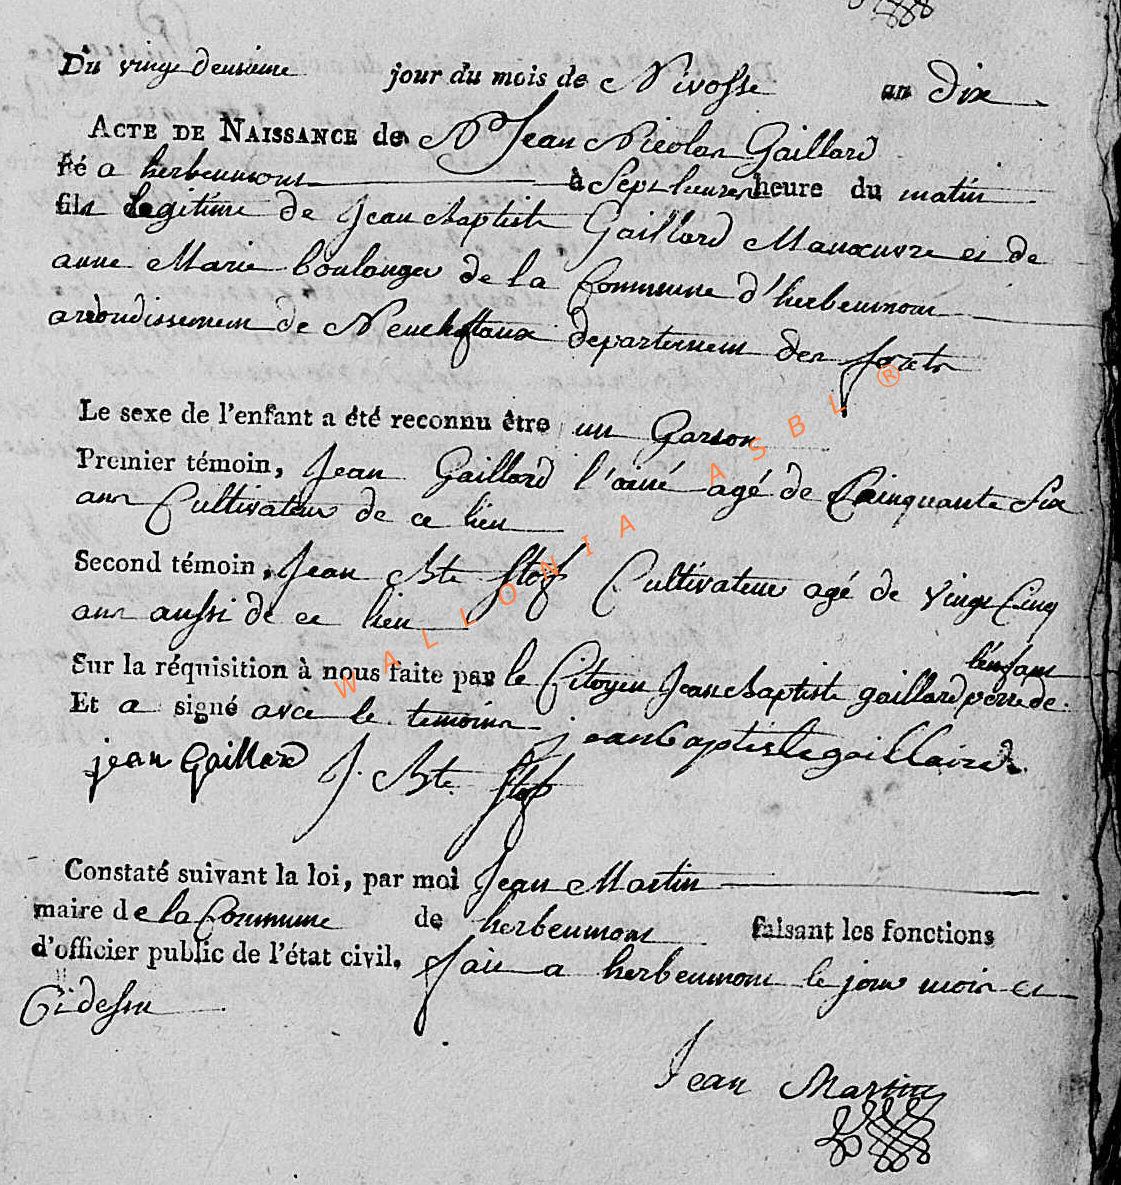 Du vingt deusieme jour du mois de Nivosse an Dix
ACTE DE NAISSANCE de Jean Nicolas Gaillard
né a herbeumont à Sept heures heure du matin
fils legitime de Jean baptiste Gaillard Manœuvre et de
anne Marie boulanger de la Commune d'herbeumont
arrondissement de Neuchattaux departement des forets
Le sexe de l'enfant a été reconnu être un Garson
Premier témoin, Jean Gaillard l'ainé agé de Cainquante Six
ans Cultivateur de ce lieu
Second témoin, Jean Bte Cultivateur agé de vingt Cinq
ans aussi de ce lieu
l'enfant
Sur la réquisition à nous faite par le Citoyen Jean baptiste gaillard perre de
Et a signé avec le temoins jean baptiste gaillaird
jean Gaillard J. Bte
Constaté suivant la loi, par moi Jean Martin
maire de la Commune de herbeumont faisant les fonctions
d'officier public de l'état civil. fait a herbeumont le jour mois et
Ci dessus
Jean Martin
WALLONIA ASBL ®